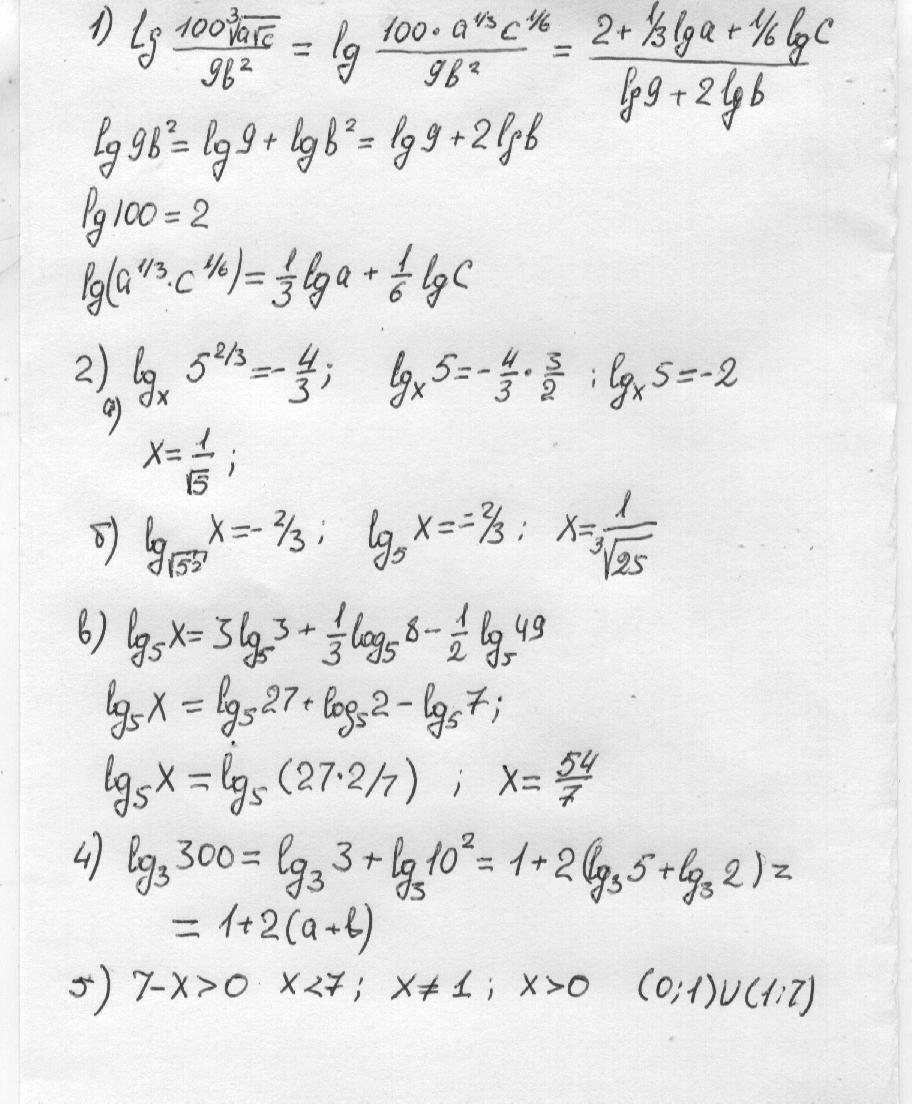 1) lg 100∛(a√c) / 9b² = lg 100·a^1/3 c^1/6 / 9b² = 2+1/3 lg a + 1/6 lg c / lg 9 + 2 lg b
lg 9b² = lg 9 + lg b² = lg 9 + 2 lg b
lg 100 = 2
lg(a^1/3·c^1/6) = 1/3 lg a + 1/6 lg c
2) а) lgₓ 5^2/3 = - 4/3; lgₓ 5 = - 4/3 · 3/2 ; lgₓ 5 = -2
x = 1/√5 ;
б) lg x = - 2/3 ; lg₅ x = = 2/3 ; x = 1/∛25
в) lg₅ x = 3 lg₅ 3 + 1/3 log₅ 8 - 1/2 lg₅ 49
lg₅ x = lg₅ 27 + log₅ 2 - lg₅ 7;
lg₅ x = lg₅ (27·2/7) ; x = 54/7
4) lg₃ 300 = lg₃ 3 + lg₃ 10² = 1+2(lg₃ 5 + lg₃ 2) =
= 1+2(a+b)
5) 7-x>0 x<7; x≠1; x>0 (0;1)∪(1;7)